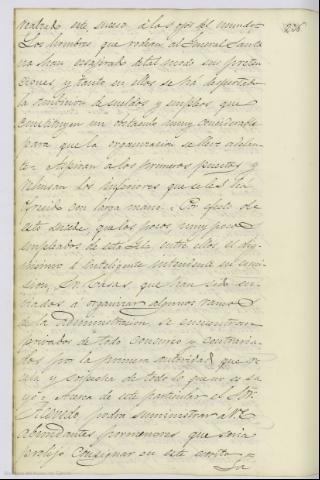 236
neutral este suceso á los ojos del mundo.
Los hombres que rodean al General Santa
na han exagerado de tal modo sus preten
ciones y tanto en ellos se há despertado
la ambicion de sueldos y empleos, que
constituyen un obstáculo muy considerable
para que la organizacion se lleve adelan
te. Aspiran á los primeros puestos y
rehusan los inferiores que se les há
ofrecido con larga mano. Por efecto de
esto sucede, que los pocos muy pocos
empleados de esta Isla entre ellos, el dig
nisimo é inteligente intendente en comi
sion, Sr. Casas, que han sido en
viados á organizar algunos ramos
de la administracion, se encuentran
privados de todo concurso y contraria
dos por la primera autoridad que re
cela y sospecha de todo lo que no es su
yo. Acerca de este particular el Sor.
podra suministrar á V.E.
abundantes pormenores que seria
prolijo consignar en este escrito =
La